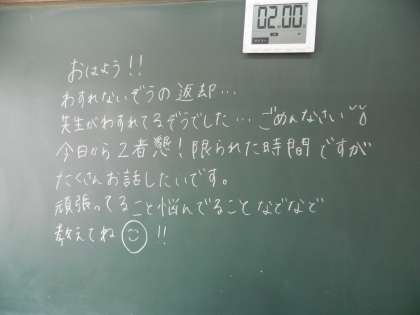 02:00
おはよう!!
わすれないぞうの返却…
先生がわすれてるぞうでした…ごめんなさい
今日から2者懇!限られた時間ですが
たくさんお話したいです。
頑張ってること悩んでることなどなど
教えてね!!